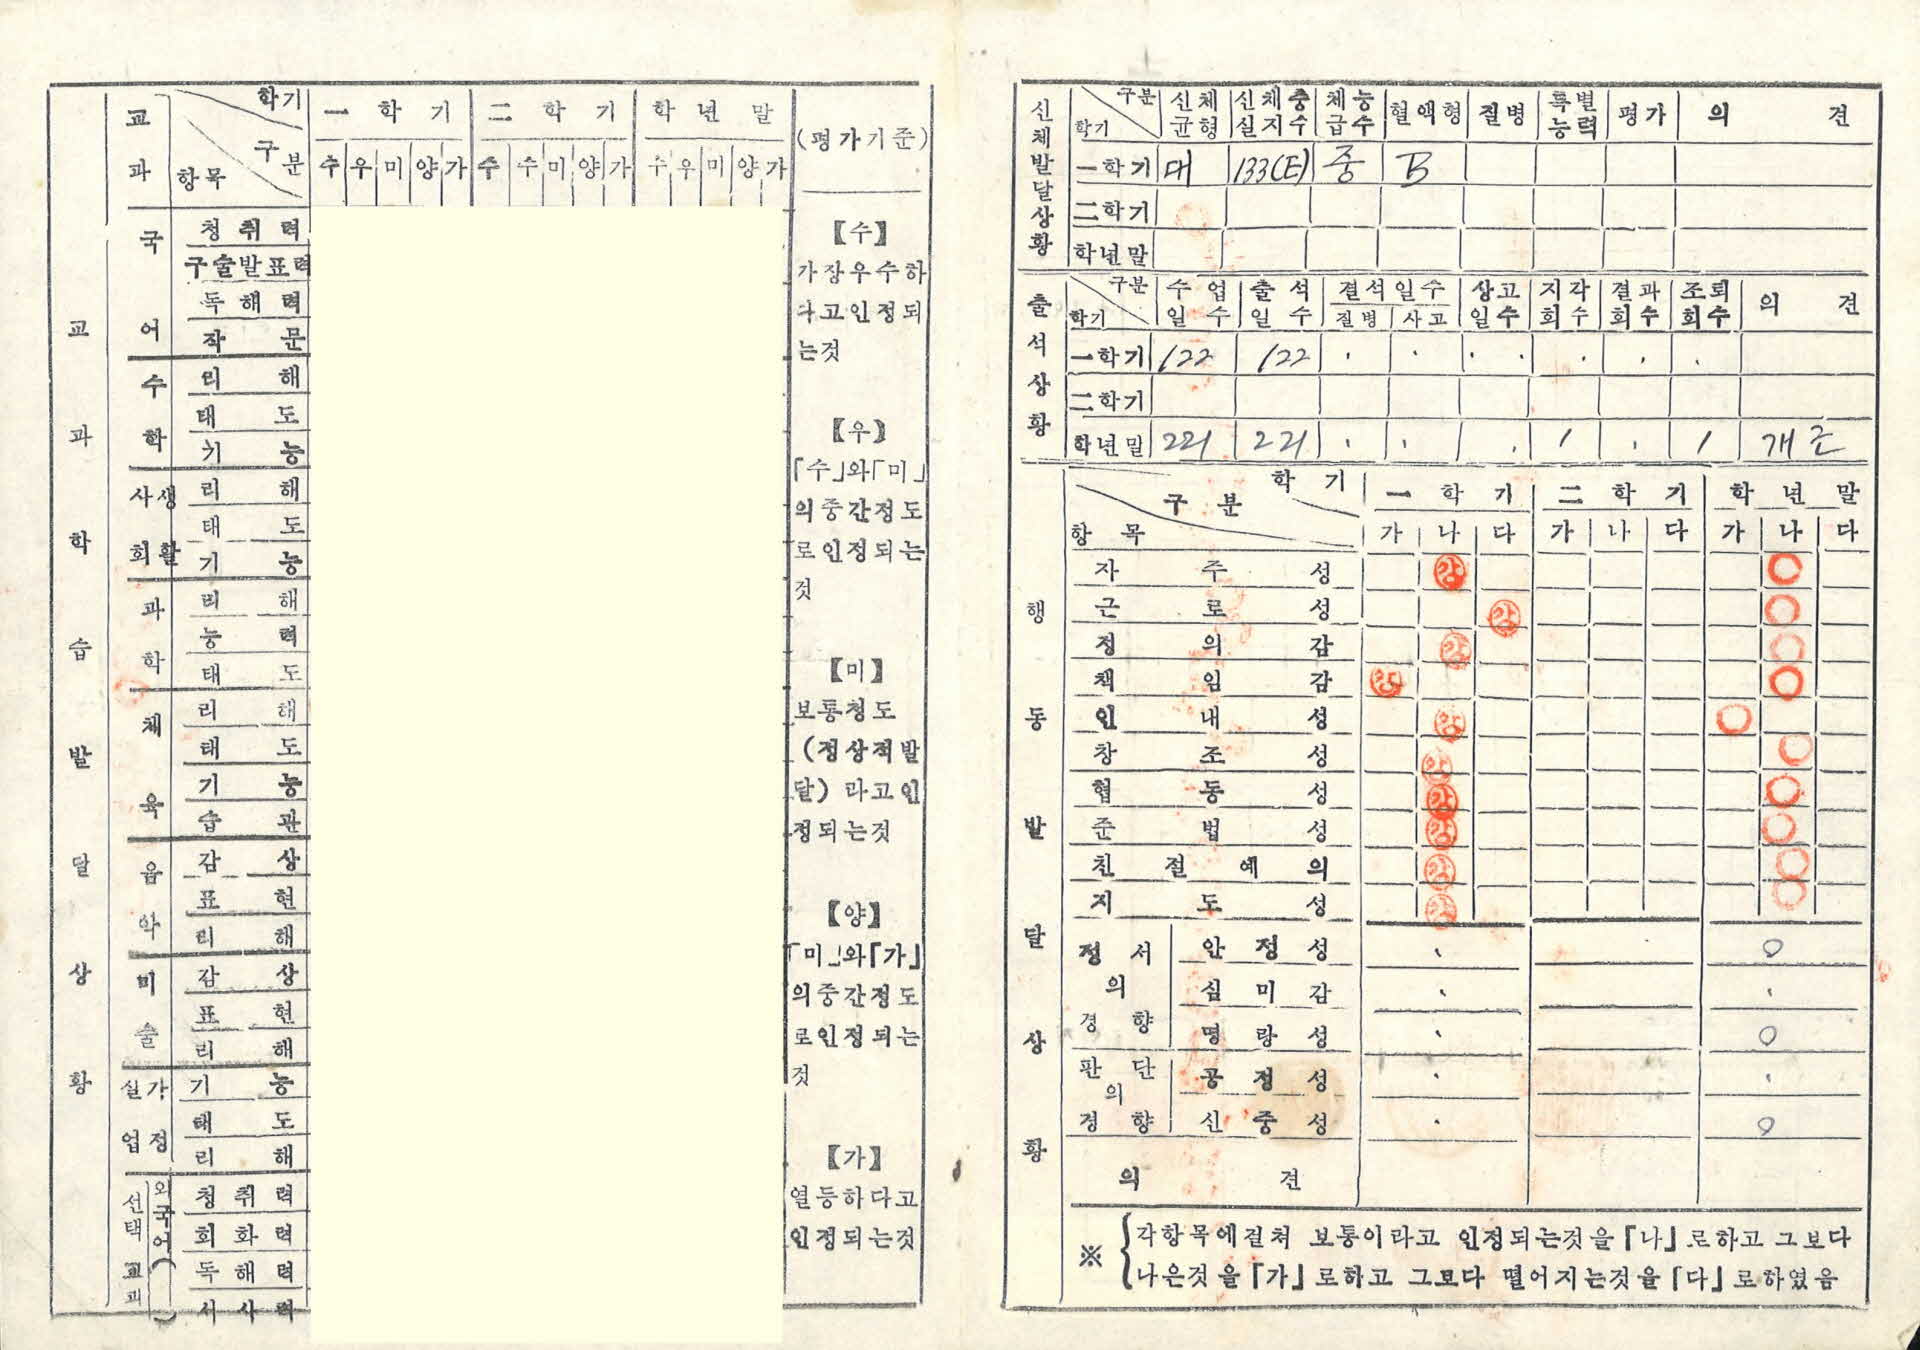 교과
학기
구분
항목
一 학 기
二 학 기
학 년 말
(평가기준)
수 우 미 양 가
수 수 미 양 가
수 우 미 양 가
교과학습발달상황
국어
청취력
구술발표력
독해력
작문
수학
리해
태도
기능
사회생활
리해
태도
기능
과학
리해
능력
태도
체육
리해
태도
기능
습관
음악
감상
표현
리해
미술
감상
표현
리해
실업가정
기능
태도
리해
선택교과
외국어( )
청취력
회화력
독해력
서사력
【수】
가장우수하
다고인정되
는것
【우】
「수」와「미」
의중간정도
로인정되는
것
【미】
보통정도
(정상적발
달) 라고인
정되는것
【양】
「미」와「가」
의중간정도
로인정되는
것
【가】
열등하다고
인정되는것
신체발달상황
구분
학기
신체균형
신체충실지수
체능급수
혈액형
질병
특별능력
평가
의 견
一학기 대 133(E) 중 B
二학기
학년말
출석상황
구분
학기
수업일수
출석일수
결석일수
질병 사고
상고일수
지각회수
결과회수
조퇴회수
의 견
一학기 122 122 · · · · · · ·
二학기
학년말 221 221 · · · 1 · 1 개근
행동발달상황
학 기
구 분
항 목
一 학 기
二 학 기
학 년 말
가 나 다
가 나 다
가 나 다
자주성 강
근로성 강
정의감 강
책임감 강
인내성 강
창조성 강
협동성 강
준법성 강
친절예의 강
지도성 강
정서의경향
안정성 · ○
심미감 · ·
명랑성 · ○
판단의경향
공정성 · ·
신중성 · ○
의 견
※ 각항목에걸쳐 보통이라고 인정되는것을「나」로하고 그보다
나은것을「가」로하고 그보다 떨어지는것을「다」로하였음